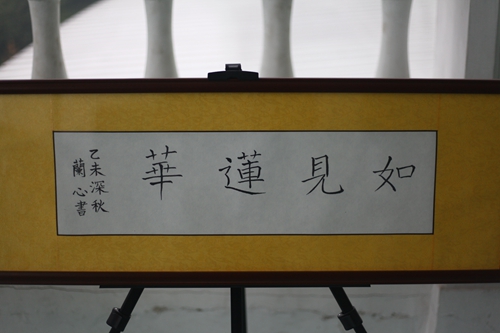 如見蓮華
乙未深秋
蘭心書